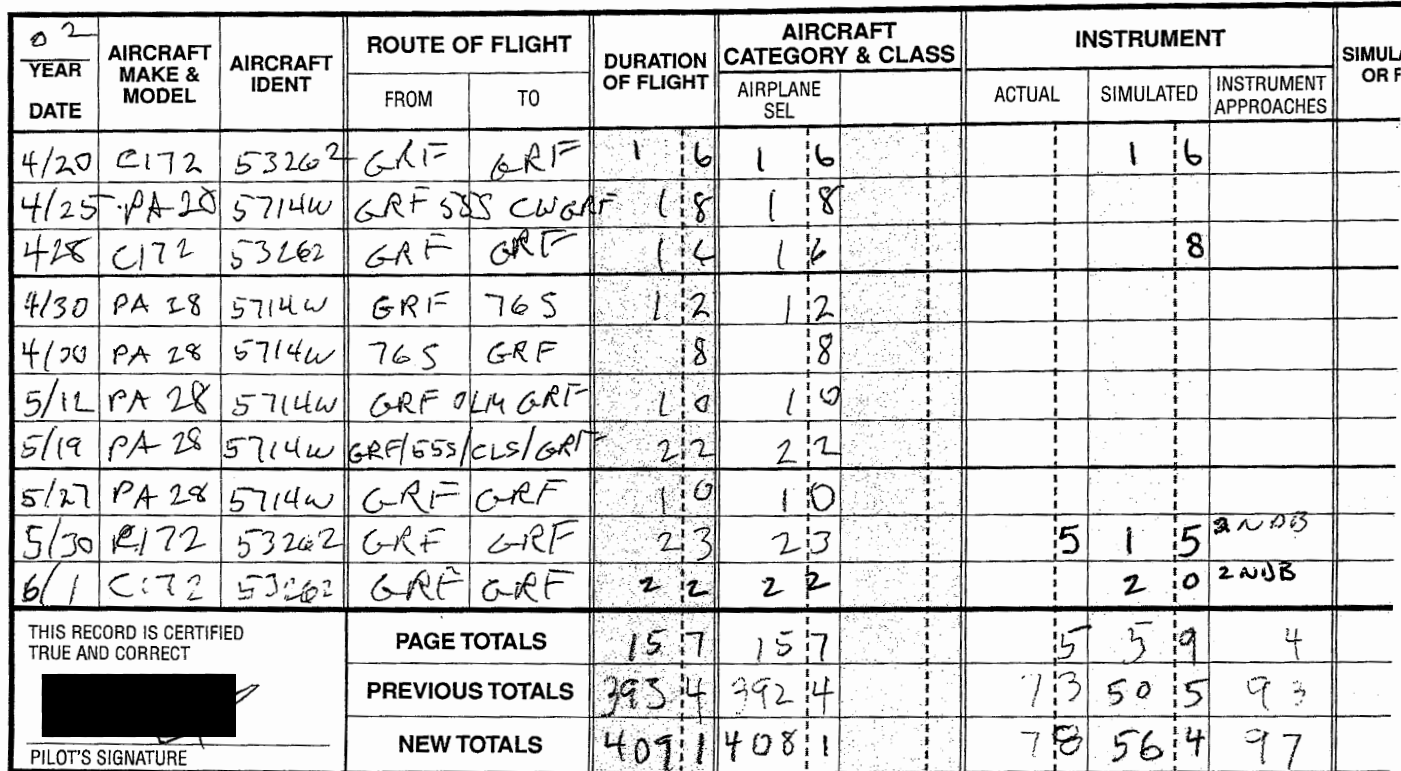 02
YEAR
DATE
AIRCRAFT MAKE & MODEL
AIRCRAFT IDENT
ROUTE OF FLIGHT
FROM TO
DURATION OF FLIGHT
AIRCRAFT CATEGORY & CLASS
AIRPLANE SEL
INSTRUMENT
ACTUAL SIMULATED INSTRUMENT APPROACHES
4/20 C172 53262 GRF GRF 1 6 1 6 1 6
4/25 PA-28 5714W GRF S88 CW GRF 1 8 1 8
428 C172 53262 GRF GRF 1 6 1 6 8
4/30 PA 28 5714W GRF 76S 1 2 1 2
4/30 PA 28 5714W 76S GRF 8 8
5/12 PA 28 5714W GRF OLM GRF 1 0 1 0
5/19 PA 28 5714W GRF/55S/CLS/GRF 2 2 2 2
5/27 PA 28 5714W GRF GRF 1 0 1 0
5/30 C172 53262 GRF GRF 2 3 2 3 5 1 5 2 NDB
6/1 C172 53262 GRF GRF 2 2 2 2 2 0 2 NDB
THIS RECORD IS CERTIFIED TRUE AND CORRECT
PILOT'S SIGNATURE
PAGE TOTALS 15 7 15 7 5 5 9 4
PREVIOUS TOTALS 393 4 392 4 7 3 50 5 93
NEW TOTALS 409 1 408 1 7 8 56 4 97